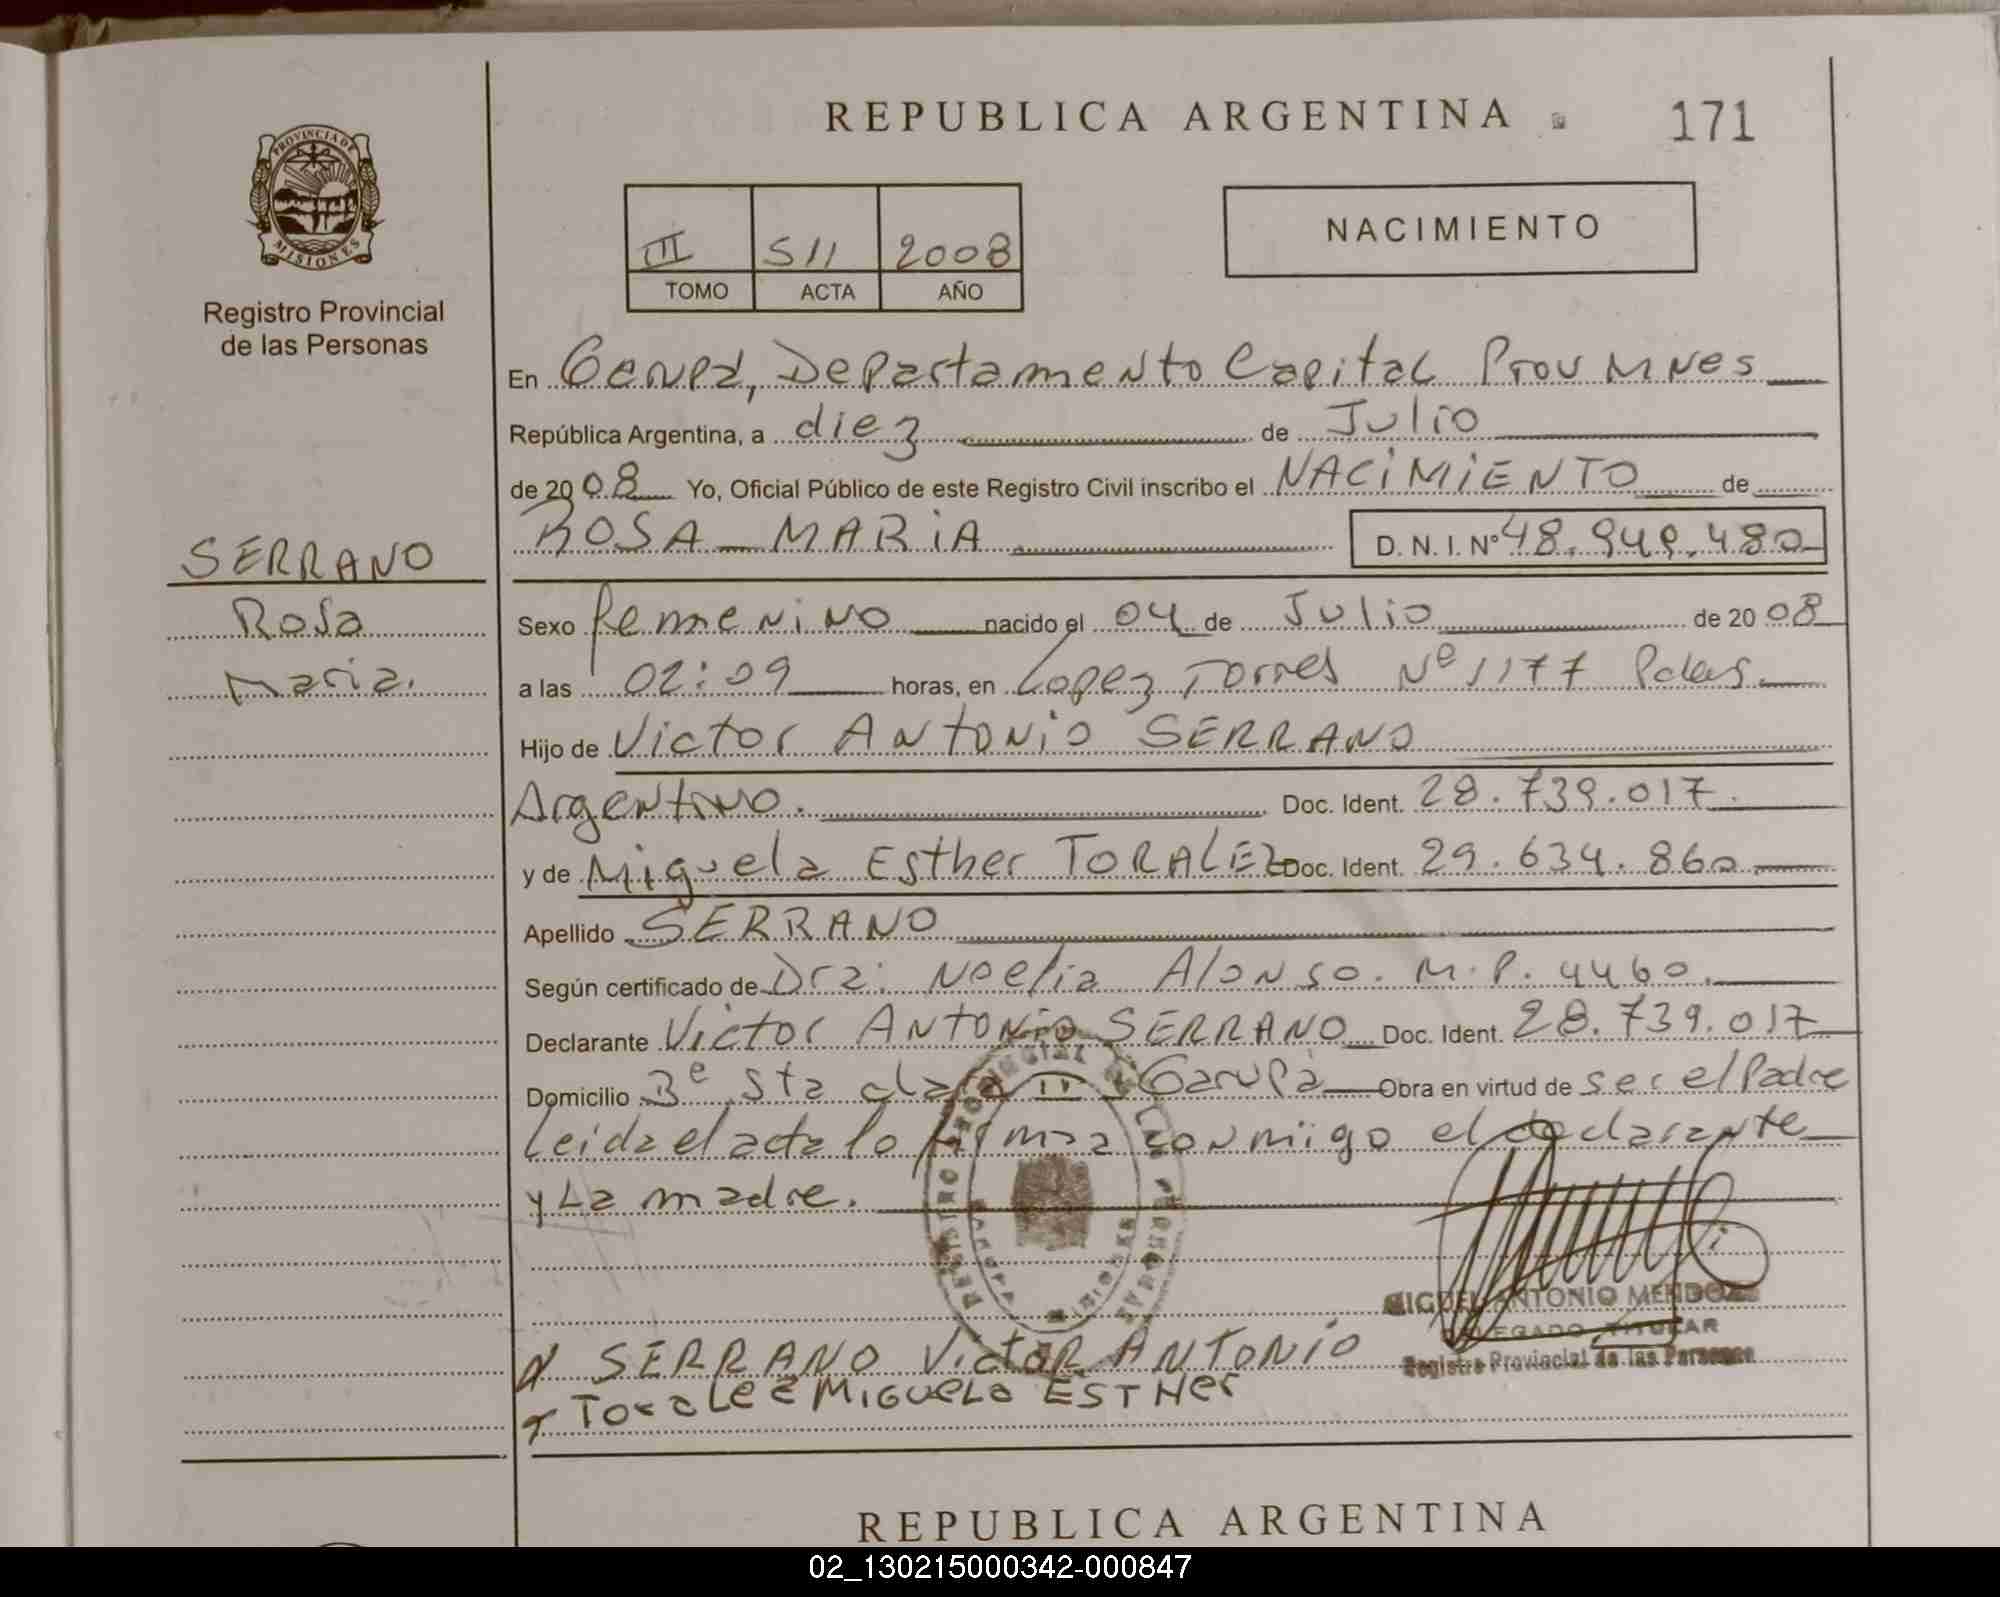 REPUBLICA ARGENTINA
171
PROVINCIA DE
MISIONES
Registro Provincial
de las Personas
III S11 2008
TOMO ACTA AÑO
NACIMIENTO
En Garupá, Departamento Capital Prov Mnes
República Argentina, a diez de Julio
de 2008 Yo, Oficial Público de este Registro Civil inscribo el NACIMIENTO de
ROSA MARIA D. N. I. Nº 48.949.480
SERRANO
Rosa
Maria.
Sexo femenino nacido el 04 de Julio de 2008
a las 02:09 horas, en Lopez Torres Nº 1177 Pdas.
Hijo de Victor Antonio SERRANO
Argentino. Doc. Ident. 28.739.017.
y de Miguela Esther TORALEZ Doc. Ident. 29.634.860
Apellido SERRANO
Según certificado de Dra: Noelia Alonso. M.P. 4460.
Declarante Victor ANTONIO SERRANO Doc. Ident. 28.739.017
Domicilio Bº Sta clara IV Garupá Obra en virtud de ser el Padre
Leida el acta lo firma conmigo el declarante
y La madre.
REGISTRO PROVINCIAL DE LAS PERSONAS
MISIONES
MIGUEL ANTONIO MENDOZA
DELEGADO TITULAR
Registro Provincial de las Personas
SERRANO VictOR ANTONIO
ToraLez MIGUeLa ESTHer
REPUBLICA ARGENTINA
02_130215000342-000847